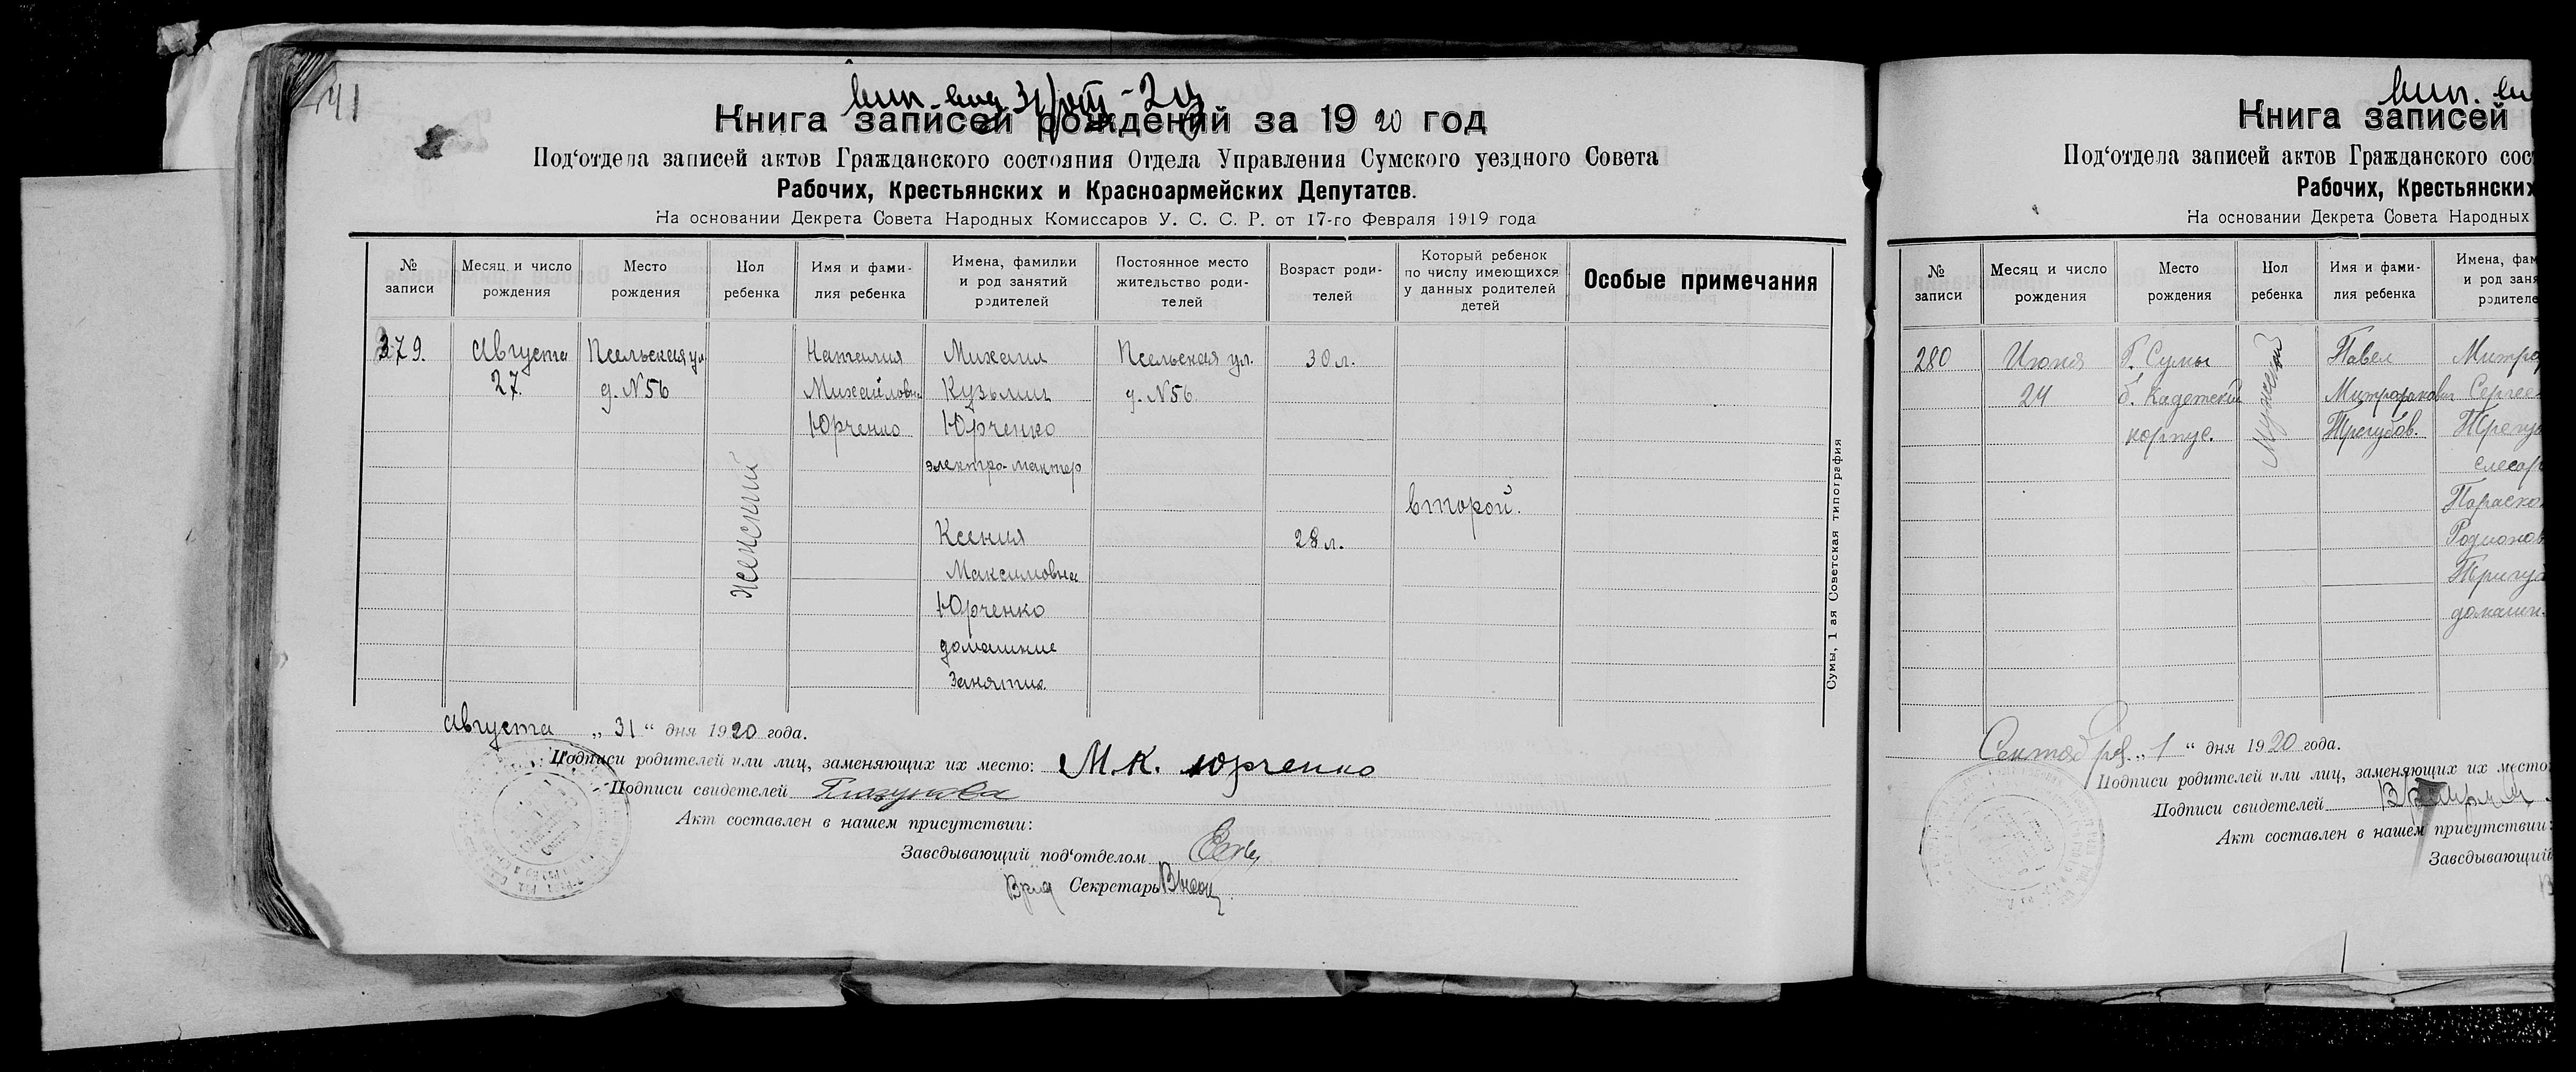 41
Книга записей рождений за 1920 год
Под‘отдела записей актов Гражданского состояния Отдела Управления Сумского уездного Совета
Рабочих, Крестьянских и Красноармейских Депутатов.
На основании Декрета Совета Народных Комиссаров У. С. С. Р. от 17-го Февраля 1919 года
№ записи
Месяц и число рождения
Место рождения
Пол ребенка
Имя и фами-
лия ребенка
Имена, фамилии
и род занятий
родителей
Постоянное место
жительство роди-
телей
Возраст роди-
телей
Который ребенок
по числу имеющихся
у данных родителей
детей
Особые примечания
379.
Августа
27.
Псельская ул
д. N 56
Женский
Наталия
Михайловна
Юрченко
Михаил
Кузьмич
Юрченко
электро-монтер
Ксения
Максимовна
Юрченко
домашние
занятия.
Псельская ул.
д. N 56
30 л.
28 л.
второй.
Сумы, 1 ая Советская типография
Августа „ 31 “ дня 1920 года.
Подписи родителей или лиц, заменяющих их место: М. К. Юрченко
Подписи свидетелей
Акт составлен в нашем присутствии:
Заведывающий под‘отделом
Врид Секретарь
Книга записей
Под‘отдела записей актов Гражданского сос
Рабочих, Крестьянских
На основании Декрета Совета Народных
№ записи
Месяц и число рождения
Место рождения
Пол ребенка
Имя и фами-
лия ребенка
Имена, фам
и род заня
родителе
280
Июня
24
Г. Сумы
б. Кадетский
корпус.
Мужской
Павел
Митрофанович
Трегубов.
Митро
Сергее
Трегу
слесарь
Параско
Родионов
Трегуб
домашн.
Сентября „ 1 “ дня 1920 года.
Подписи родителей или лиц, заменяющих их место:
Подписи свидетелей
Акт составлен в нашем присутствии:
Заведывающий